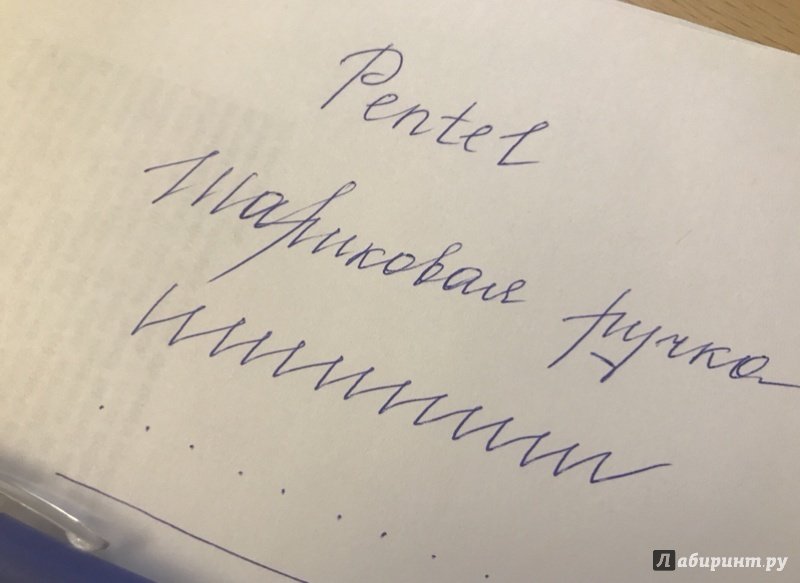 Pentel
Шариковая ручка
Лабиринт.ру